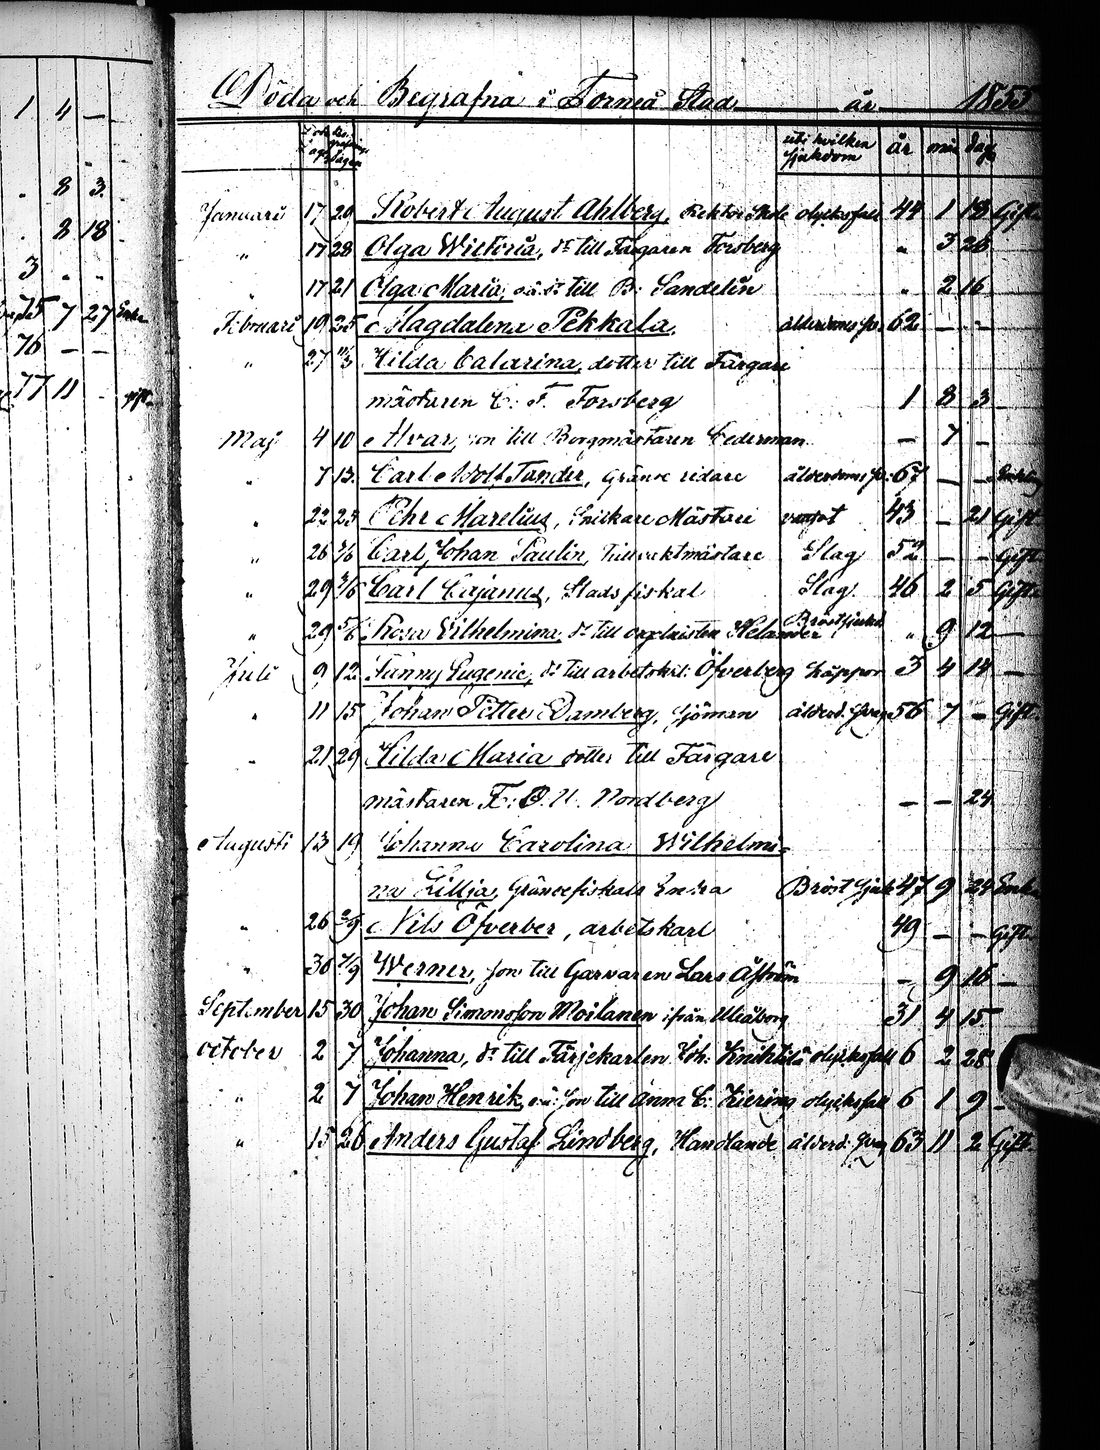 1 4 —
. 8 3
. 8 18
3 . .
75 7 27 Enka
76 — —
77 11 . gift
Döda och Begrafna i Torneå Stad år 1853
uti hvilken sjukdom år mån dag
Januari 17 20 Robert August Ahlberg, Rektor Skole olycksfall 44 1 18 Gift
" 17 28 Olga Wictoria, dr till Färgaren Forsberg " 3 26
" 17 21 Olga Maria, oä. dr till B: Sandelin " 2 16
Februari 19 25 Magdalena Pekkala, ålderdoms sv. 62 — —
" 27 11/3 Hilda Catarina, dotter till Färgare
mästaren C. F. Forsberg 1 8 3
Maj 4 10 Alvar, son till Borgmästaren Cederman — 7 —
" 7 13 Carl Adolf Tander, Gränse ridare ålderdoms sv. 67 — —
" 22 25 Pehr Marelius, Snickare Mästare 43 — 21 Gift
" 26 Carl Johan Paulin, Tullvaktmästare Slag 52 — — Gift
" 29 Carl Cajanus, Stadsfiskal Slag 46 2 5 Gift
" 29 5/6 Rosa Vilhelmina, dr till orgelnisten Helander Bröstsjukd " 9 12 —
Juli 9 12 Fanny Eugenie, dr till arbetskarl: Öfverberg koppor 3 4 14 —
" 11 15 Johan Petter Damberg, Sjöman ålderd. svag 56 7 — Gift
" 21 29 Hilda Maria dotter till Färgare
mästaren F. O. U. Nordberg — — 24
Augusti 13 19 Johanna Carolina Wilhelmi-
na Lillja, Gränsefiskals Enka Bröst sjuk 47 9 24 Enka
" 26 2/9 Nils Öfverber, arbetskarl 49 — — Gift
" 30 7/9 Werner, son till Garvaren Lars Åström — 9 16 —
September 15 30 Johan Simonsson Moilanen ifrån Uleåborg 31 4 15
October 2 7 Johanna, dr till Färjekarlen Joh: Knihtilä olycksfall 6 2 28
" 2 7 Johan Henrik, oä. son till Anna C: Kiering olycksfall 6 1 9 —
" 15 26 Anders Gustaf Lindberg, Handlande ålderd. svag 63 11 2 Gift